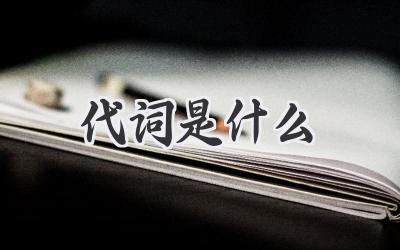 代词是什么